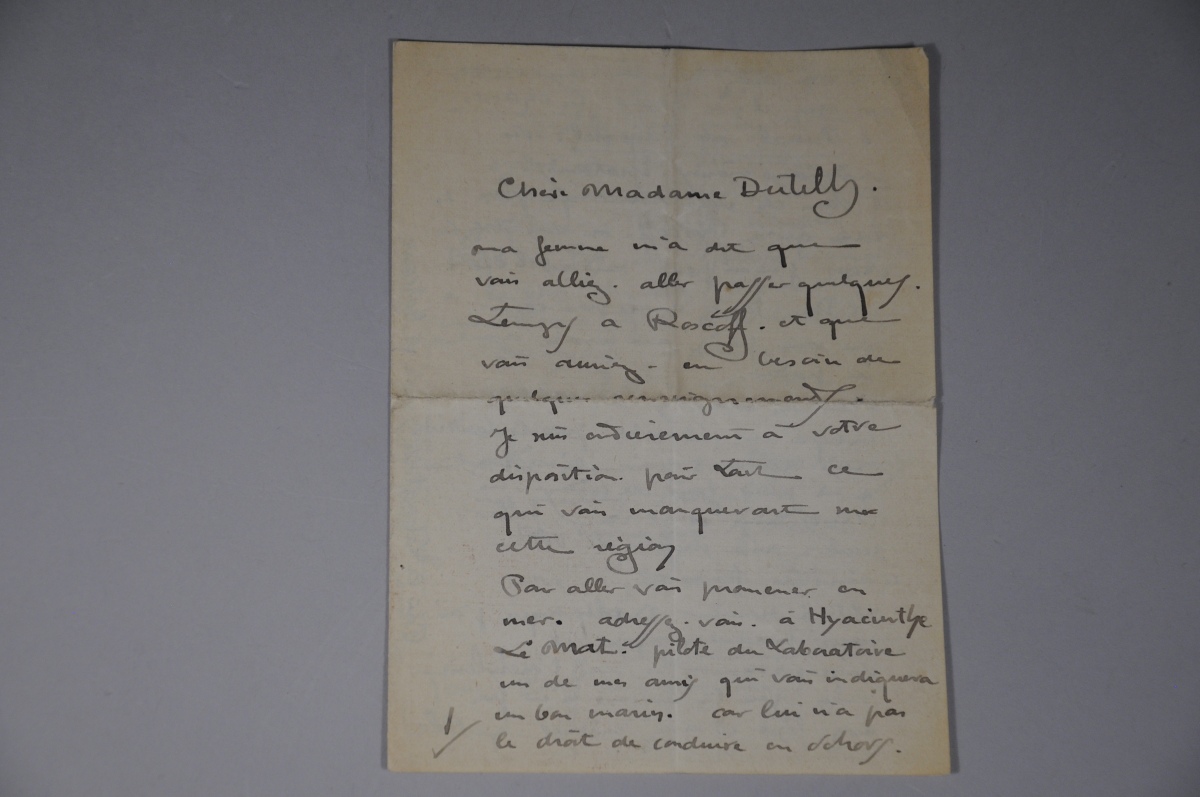 Chère Madame Dutilly.
ma femme m'a dit que
vous alliez. aller passer quelques.
Temps a Roscoff. et que
vous auriez. en besoin de
quelques renseignements.
Je suis entièrement à votre
disposition. pour tout ce
qui vous manquerait
cette région
Pour aller vous promener en
mer. adressez. vous. à Hyacinthe
Le Mat. pilote du Laboratoire
un de mes amis qui vous indiquera
un bon marin. car lui n'a pas
le droit de conduire en dehors.